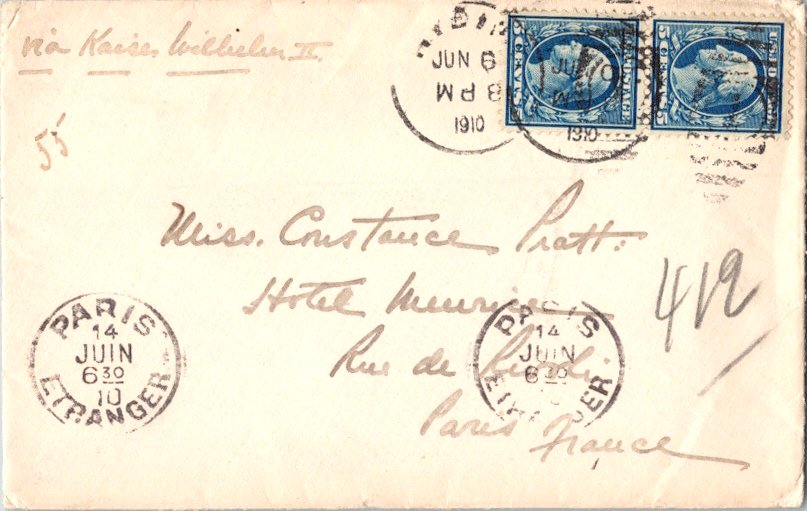 via Kaiser Wilhelm II
JUN 9
8 PM
1910
1910
5 CENTS 5
5 CENTS 5
55
Miss. Constance Pratt.
Hotel Meurice
Rue de Rivoli
Paris France
419
PARIS
14
JUIN
6 30
10
ETRANGER
PARIS
14
JUIN
6 30
ETRANGER